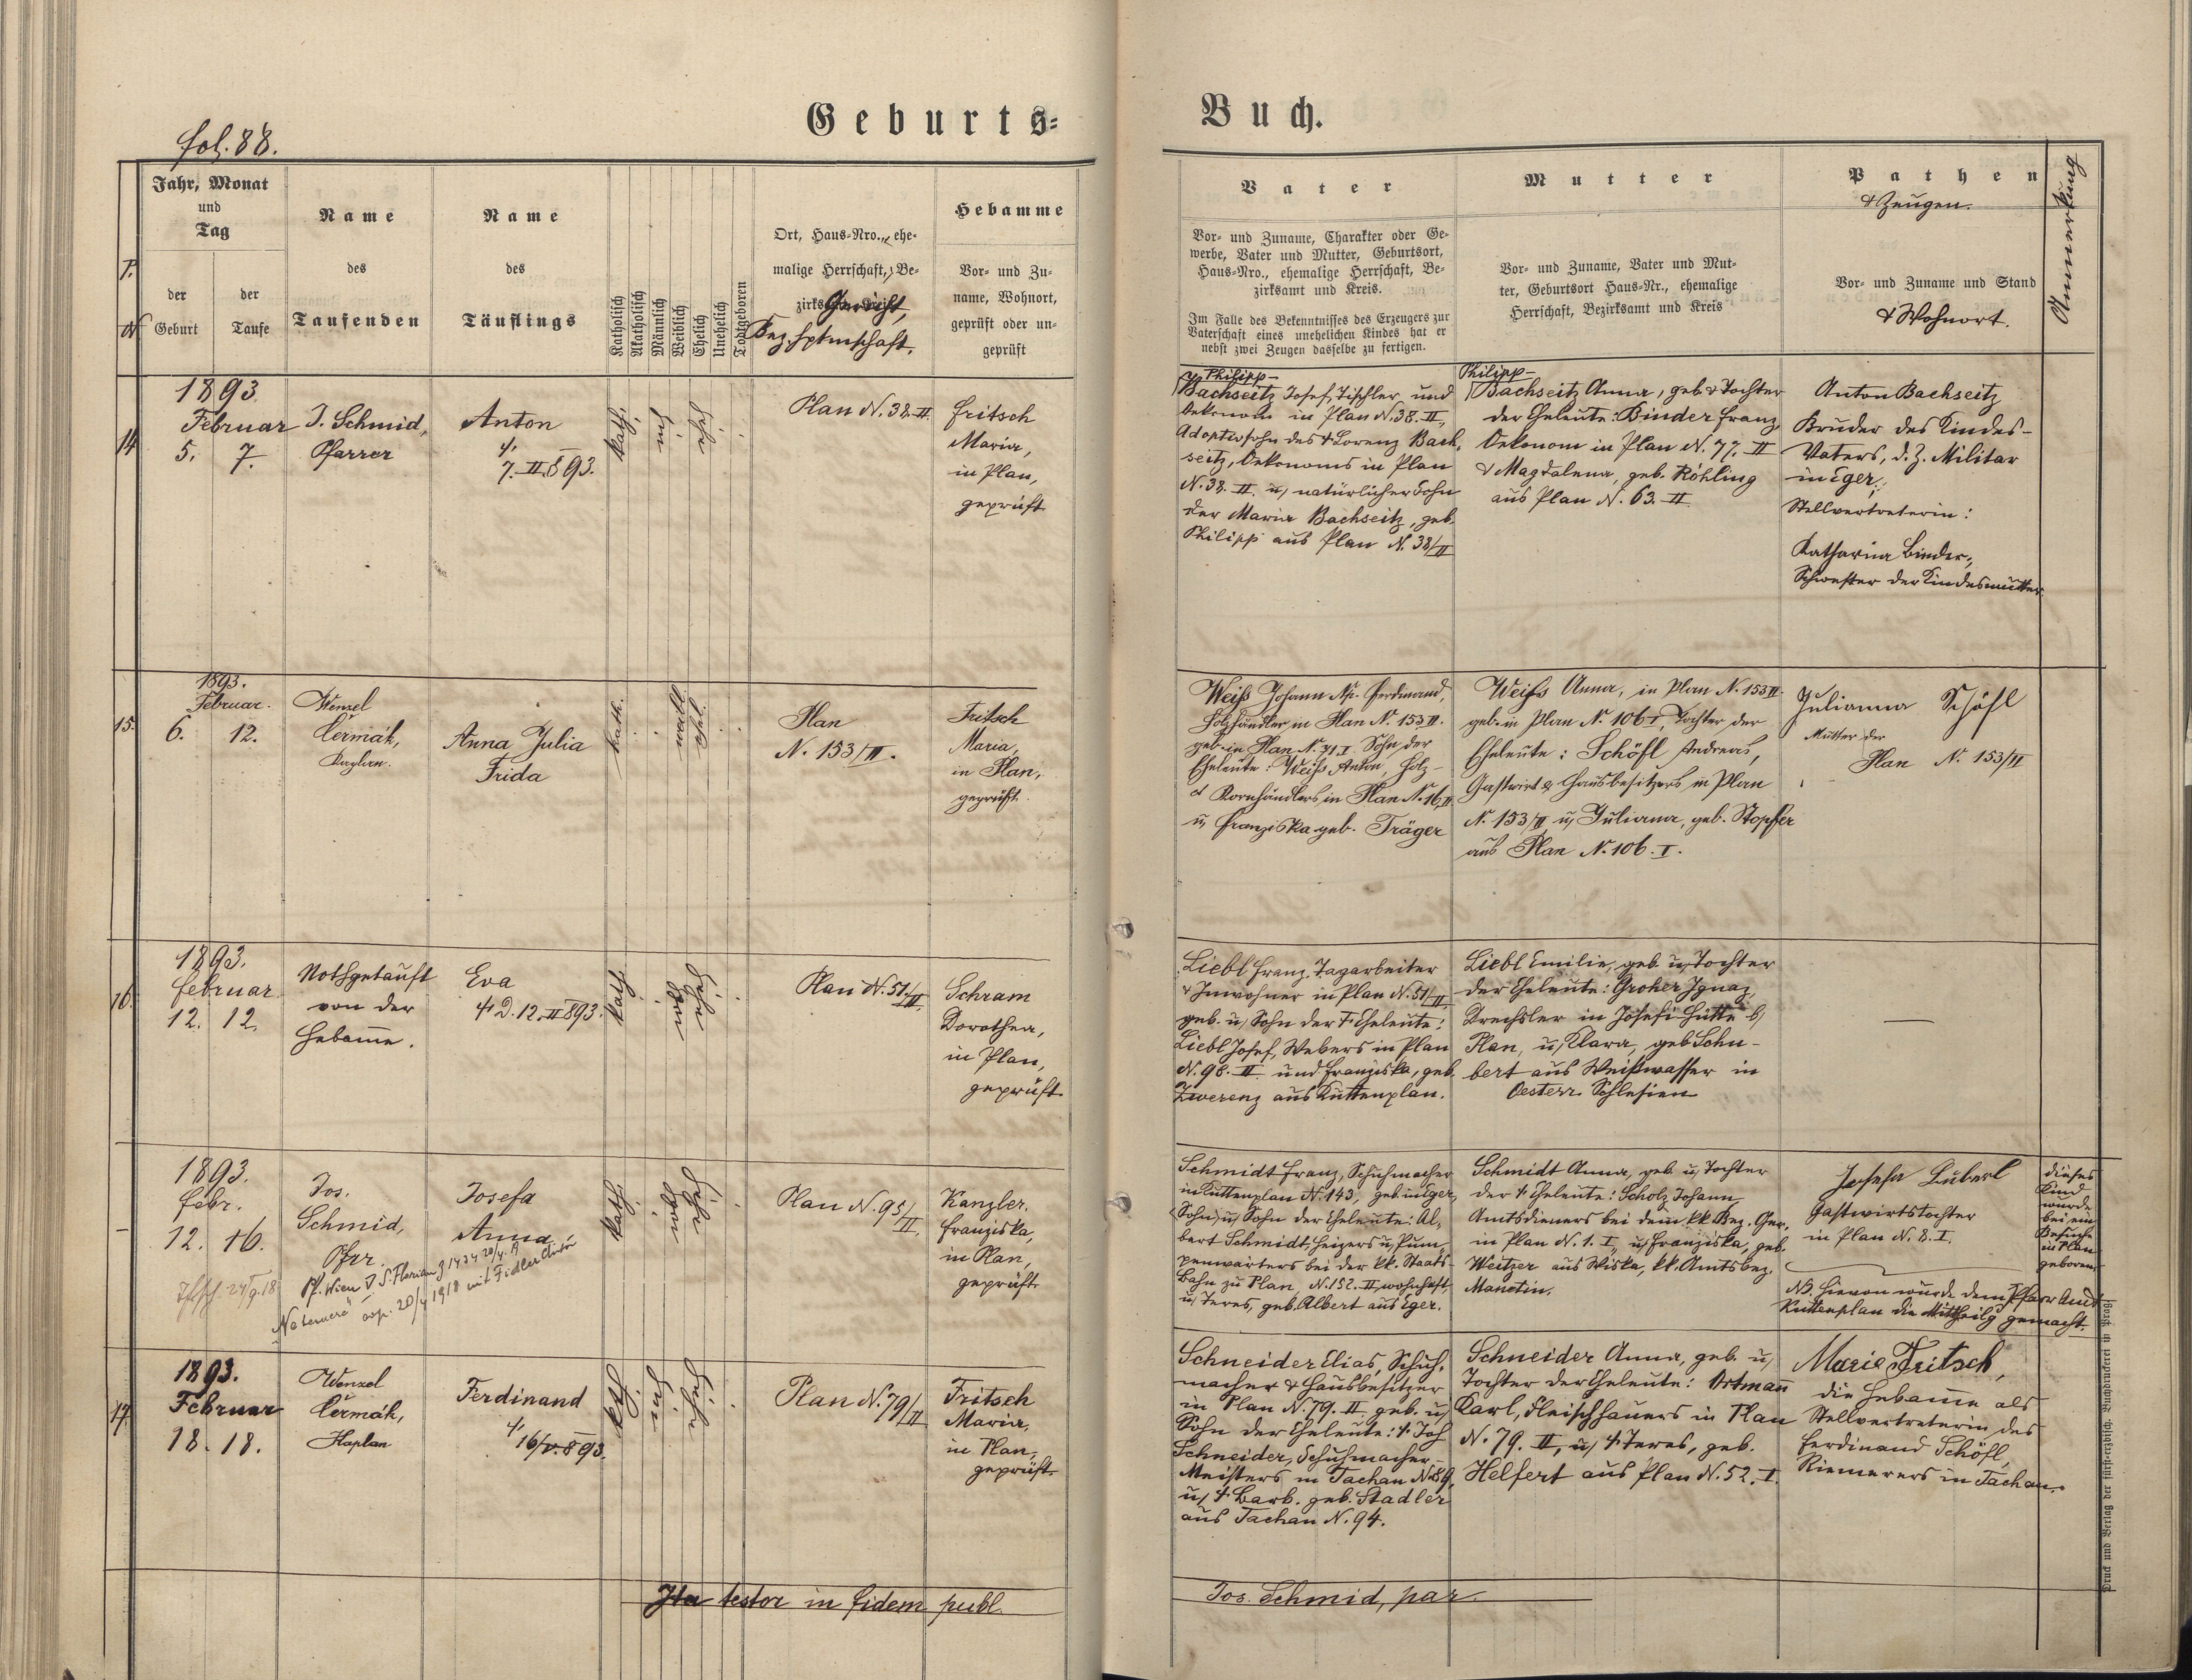 Geburts-
Buch.
fol. 88.
Jahr, Monat
und
Tag
der
Geburt
der
Taufe
Name
des
Taufenden
Name
des
Täuflings
Katholisch
Akatholisch
Männlich
Weiblich
Ehelich
Unehelich
Todtgeboren
Ort, Haus-Nro., ehe-
malige Herrschaft, Be-
Gericht,
Bez. Hptmschaft.
Hebamme
Vor- und Zu-
name, Wohnort,
geprüft oder un-
geprüft
Vater
Vor- und Zuname, Charakter oder Ge-
werbe, Vater und Mutter, Geburtsort,
Haus-Nro., ehemalige Herrschaft, Be-
zirksamt und Kreis.
Im Falle des Bekenntnisses des Erzeugers zur
Vaterschaft eines unehelichen Kindes hat er
nebst zwei Zeugen dasselbe zu fertigen.
Mutter
Vor- und Zuname, Vater und Mut-
ter, Geburtsort Haus-Nr., ehemalige
Herrschaft, Bezirksamt und Kreis
Pathen
& Zeugen.
Vor- und Zuname und Stand
& Wohnort.
Anmerkung
14
1893
Februar
5. 7.
J. Schmid,
Pfarrer
Anton
7. II. 893.
kath.
Plan N. 38. II.
Fritsch
Maria,
in Plan,
geprüft
Philipp-
Bachseitz Josef, Tischler und
Oekonom in Plan N. 38. II.,
Adoptivsohn des † Lorenz Bach-
seitz, Oekonoms in Plan
N. 38. II. u, natürlicher Sohn
der Maria Bachseitz, geb.
Philipp aus Plan N. 38/II
Philipp-
Bachseitz Anna, geb. & Tochter
der Eheleute: Binder Franz,
Oekonom in Plan N. 77. II
& Magdalena, geb. Röhling
aus Plan N. 63. II
Anton Bachseitz
Bruder des Kindes-
Vaters, d. Z. Militar
in Eger,
Stellvertreterin:
Katharina Binder,
Schwester der Kindesmutter.
15.
1893.
Februar.
6. 12.
Wenzel
Čermák,
Kaplan.
Anna Julia
Frida
kath.
Plan
N. 153/II.
Fritsch
Maria,
in Plan,
geprüft.
Weiß Johann Np. Ferdinand,
Holzhändler in Plan N. 153 II.
geb. in Plan N. 31 I. Sohn der
Eheleute: Weiß Anton, Holz-
& Kornhändlers in Plan N. 16 II
u, Franziska geb. Träger
Weiss Anna, in Plan N. 153 II.
geb. in Plan N. 106 I, Tochter der
Eheleute: Schöfl Andreas,
Gastwirt & Hausbesitzers in Plan
N. 153/II u, Juliana, geb. Stopfer
aus Plan N. 106. I.
Julianna Schöfl
Mutter der
Plan N. 153/II
16.
1893.
Februar
12. 12.
Nothgetauft
von der
Hebamme.
Eva
† D. 12. II 893.
kath.
Plan N. 51/II.
Schram
Dorothea,
in Plan,
geprüft
Liebl Franz, Tagarbeiter
& Inwohner in Plan N. 51/II
geb. u, Sohn der † Eheleute:
Liebl Josef, Webers in Plan
N. 98. II. und Franziska, geb.
Zwerenz aus Kuttenplan.
Liebl Emilie, geb. u, Tochter
der Eheleute: Groher Ignaz,
Drechsler in Josefi-Hütte b/
Plan, u, Klara, geb Schu-
bert aus Weißwasser in
Oesterr. Schlesien
—
–
1893.
Febr.
12. 16.
Jos.
Schmid,
Pfrr.
Josefa
Anna
kath.
Plan N. 95/II
Kanzler,
Franziska,
in Plan,
geprüft
Pf. Wien V. S. Florian
20/4 1918 mit Fidler Anton
Schmidt Franz, Schuhmacher
in Kuttenplan N. 143, geb. in Eger,
Sohn u, Sohn der Eheleute: Al-
bert Schmidt, Heizers u, Pum-
penwärters bei der kk. Staats-
bahn zu Plan, N. 152. II wohnhaft,
u, Teres, geb. Albert aus Eger.
Schmidt Anna, geb. u, Tochter
der † Eheleute: Scholz Johann,
Amtsdieners bei dem kk. Bez. Ger.
in Plan N. 1. I., u, Franziska, geb.
Weitzer aus Wiska, kk. Amtsbez.
Manetin.
Josefa Luberl
Gastwirtstochter
in Plan N. 8. I.
Dieses
Kind
wurde
bei ein
Besuche
in Plan
geboren.
NB. Hievon wurde dem Pfarr Amt
Kuttenplan die Mittheilg gemacht.
17.
1893.
Februar
18. 18.
Wenzel
Čermák,
Kaplan
Ferdinand
kth.
Plan N. 79/II
Fritsch
Maria,
in Plan,
geprüft.
Schneider Elias, Schuh-
macher & Hausbesitzer
in Plan N. 79. II. geb. u,
Sohn der Eheleute: † Jos
Schneider, Schuhmacher-
Meisters in Tachau N. 89,
u, † Barb. geb. Stadler
aus Tachau N. 94.
Schneider Anna, geb. u,
Tochter der Eheleute: Ortmann
Karl, Fleischhauers in Plan
N. 79. II, u, † Teres, geb.
Helfert aus Plan N. 52. I.
Marie Fritsch,
die Hebamme als
Stellvertreterin des
Ferdinand Schöfl,
Riemerers in Tachau.
Ita testor in fidem publ.
Jos. Schmid, par.
Druck und Verlag der fürsterzbisch. Buchdruckerei in Prag.